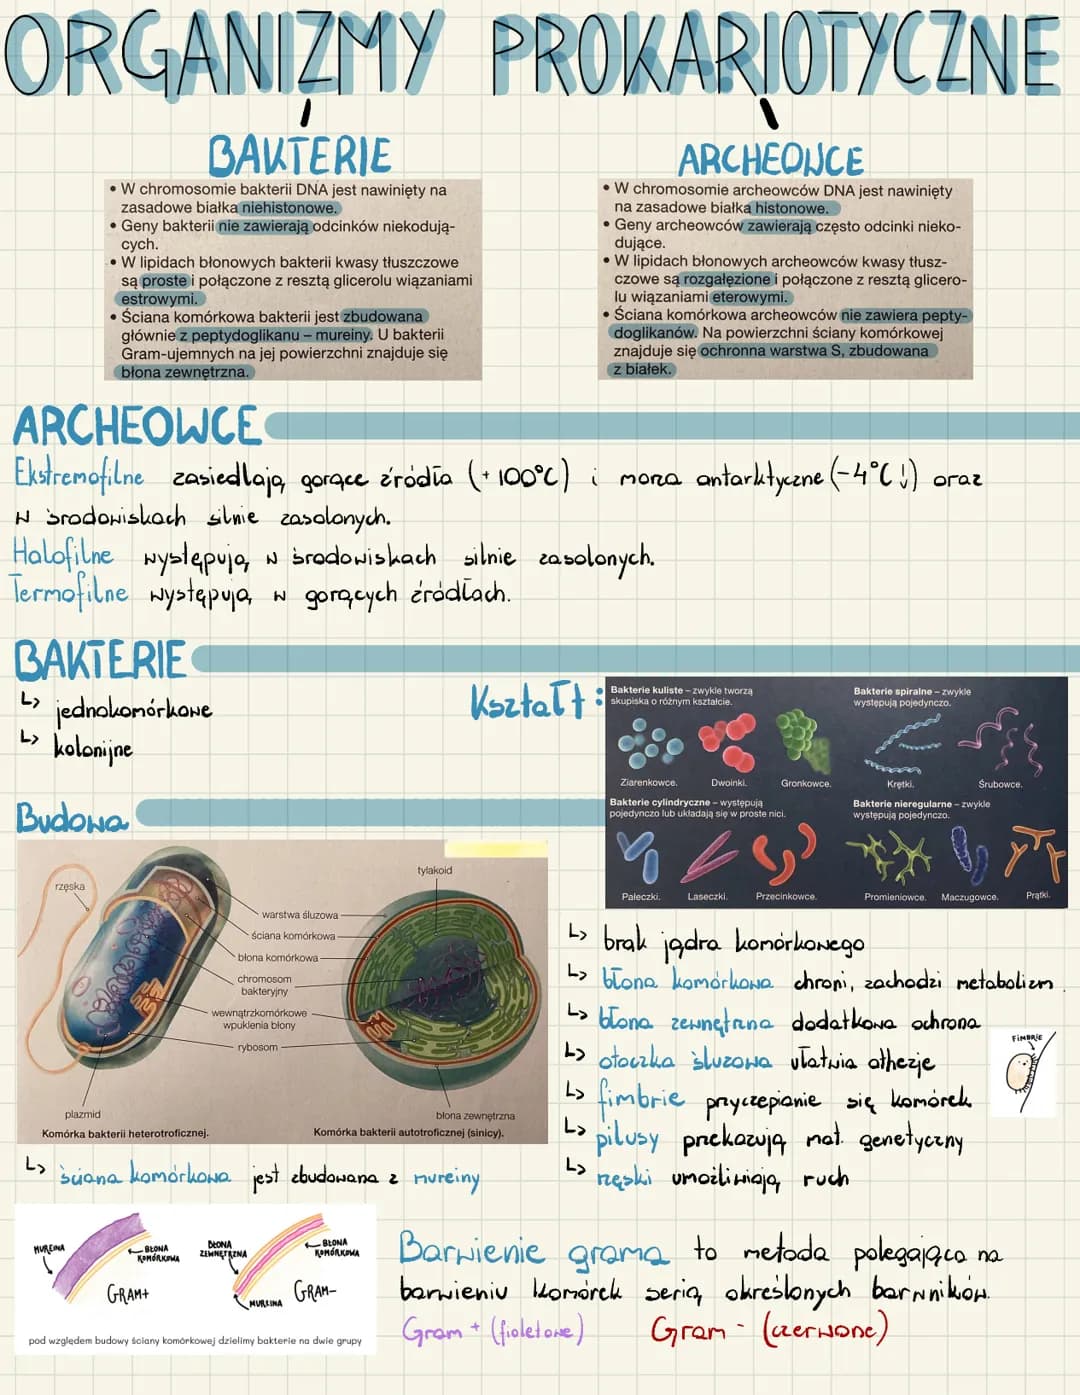 ORGANIZMY PROKARIOTYCZNE
BAKTERIE
• W chromosomie bakterii DNA jest nawinięty na
zasadowe białka niehistonowe.
• Geny bakterii nie zawierają odcinków niekodują-
cych.
• W lipidach błonowych bakterii kwasy tłuszczowe
są proste i połączone z resztą glicerolu wiązaniami
estrowymi.
• Ściana komórkowa bakterii jest zbudowana
głównie z peptydoglikanu – mureiny. U bakterii
Gram-ujemnych na jej powierzchni znajduje się
błona zewnętrzna.
ARCHEOWCE
• W chromosomie archeowców DNA jest nawinięty
na zasadowe białka histonowe.
• Geny archeowców zawierają często odcinki nieko-
dujące.
• W lipidach błonowych archeowców kwasy tłusz-
czowe są rozgałęzione i połączone z resztą glicero-
lu wiązaniami eterowymi.
• Ściana komórkowa archeowców nie zawiera pepty-
doglikanów. Na powierzchni ściany komórkowej
znajduje się ochronna warstwa S, zbudowana
z białek.
ARCHEOWCE
Ekstremofilne zasiedlają gorące źródła (+100°C) i morza antarktyczne (-4°C!) oraz
w środowiskach silnie zasolonych.
Halofilne występują w środowiskach silnie zasolonych.
Termofilne występują w gorących źródłach.
BAKTERIE
↳ jednokomórkowe
↳ kolonijne
Kształt:
Bakterie kuliste – zwykle tworzą
skupiska o różnym kształcie.
Ziarenkowce. Dwoinki. Gronkowce.
Bakterie spiralne – zwykle
występują pojedynczo.
Krętki. Śrubowce.
Bakterie cylindryczne – występują
pojedynczo lub układają się w proste nici.
Pałeczki. Laseczki. Przecinkowce.
Bakterie nieregularne – zwykle
występują pojedynczo.
Promieniowce. Maczugowce. Prątki.
Budowa
rzęska
tylakoid
warstwa śluzowa
ściana komórkowa
błona komórkowa
chromosom
bakteryjny
wewnątrzkomórkowe
wpuklenia błony
rybosom
plazmid
błona zewnętrzna
Komórka bakterii heterotroficznej.
Komórka bakterii autotroficznej (sinicy).
↳ brak jądra komórkowego
↳ błona komórkowa chroni, zachodzi metabolizm
↳ błona zewnętrzna dodatkowa ochrona
↳ otoczka śluzowa ułatwia athezje
↳ fimbrie przyczepianie się komórek
↳ pilusy przekazują mat. genetyczny
↳ rzęski umożliwiają ruch
FIMBRIE
↳ ściana komórkowa jest zbudowana z mureiny
MUREINA
BŁONA
KOMÓRKOWA
GRAM+
BŁONA
ZEWNĘTRZNA
BŁONA
KOMÓRKOWA
MUREINA
GRAM-
pod względem budowy ściany komórkowej dzielimy bakterie na dwie grupy
Barwienie grama to metoda polegająca na
barwieniu komórek serią określonych barwników.
Gram + (fioletowe) Gram - (czerwone)